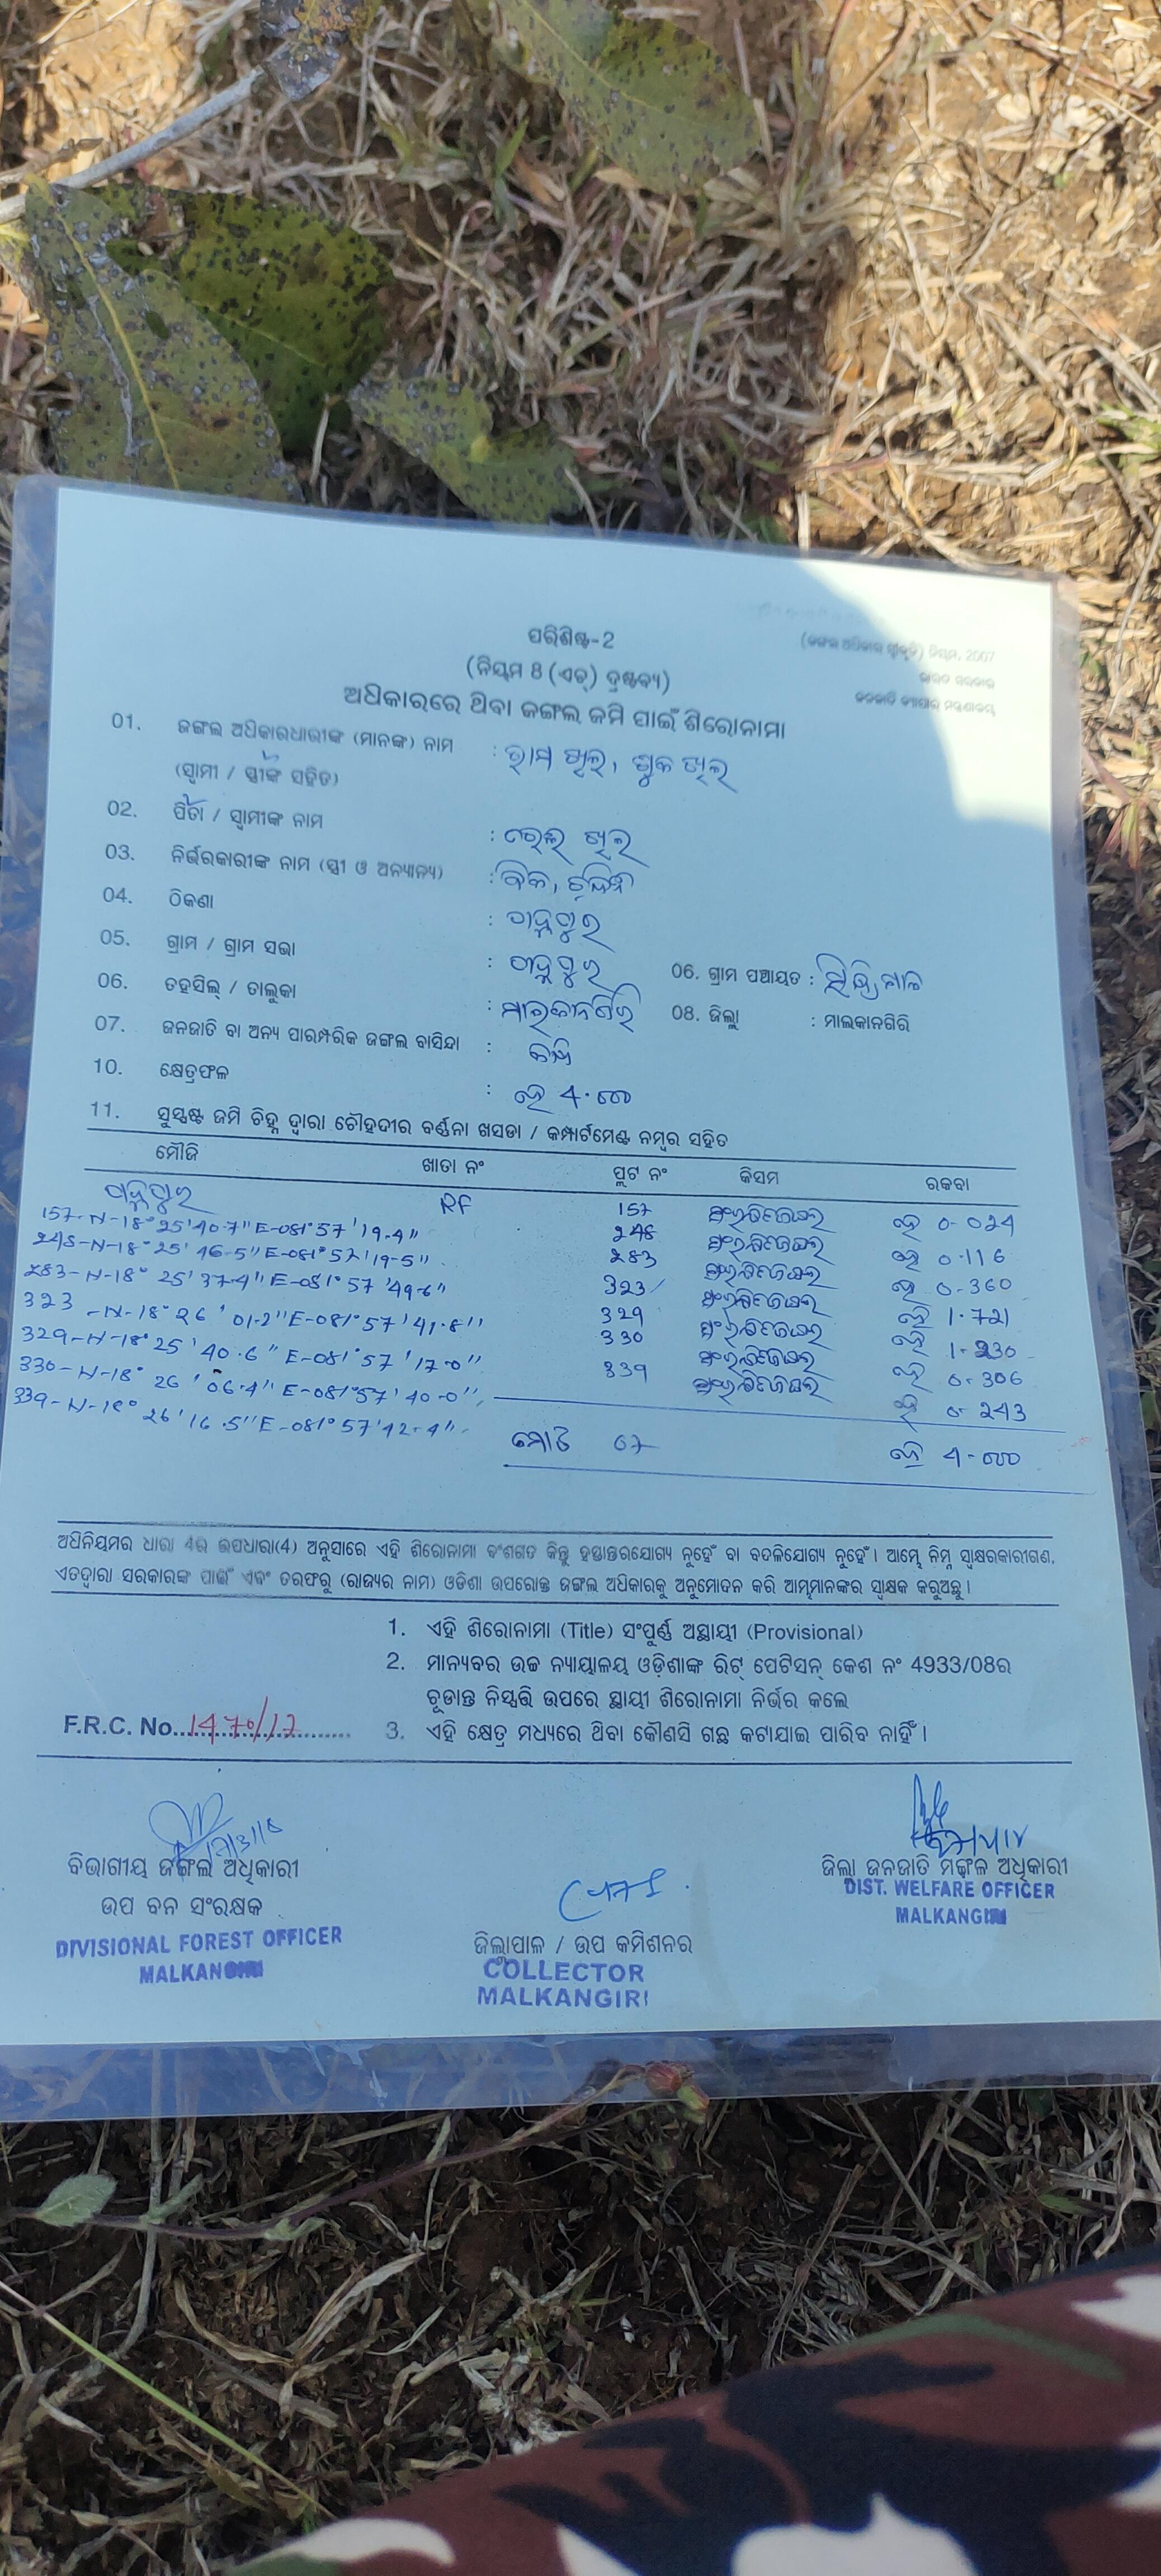 ପରିଶିଷ୍ଟ-2
(ଜଙ୍ଗଲ ଅଧିକାର ସ୍ୱୀକୃତି) ନିୟମ, 2007
ଭାରତ ସରକାର
ଜନଜାତି ବ୍ୟାପାର ମନ୍ତ୍ରଣାଳୟ
(ନିୟମ 8 (ଏଚ୍) ଦ୍ରଷ୍ଟବ୍ୟ)
ଅଧିକାରରେ ଥିବା ଜଙ୍ଗଲ ଜମି ପାଇଁ ଶିରୋନାମା
01. ଜଙ୍ଗଲ ଅଧିକାରଧାରୀଙ୍କ (ମାନଙ୍କ) ନାମ : ରାମ ଖିଲ, ଶୁକ ଖିଲ
(ସ୍ୱାମୀ / ସ୍ତ୍ରୀଙ୍କ ସହିତ)
02. ପିତା / ସ୍ୱାମୀଙ୍କ ନାମ :
03. ନିର୍ଭରକାରୀଙ୍କ ନାମ (ସ୍ତ୍ରୀ ଓ ଅନ୍ୟାନ୍ୟ) :
04. ଠିକଣା :
05. ଗ୍ରାମ / ଗ୍ରାମ ସଭା : 06. ଗ୍ରାମ ପଞ୍ଚାୟତ :
06. ତହସିଲ୍ / ତାଲୁକା : ମାଲକାନଗିରି 08. ଜିଲ୍ଲା : ମାଲକାନଗିରି
07. ଜନଜାତି ବା ଅନ୍ୟ ପାରମ୍ପରିକ ଜଙ୍ଗଲ ବାସିନ୍ଦା :
10. କ୍ଷେତ୍ରଫଳ : ହେ 4.000
11. ସୁସ୍ପଷ୍ଟ ଜମି ଚିହ୍ନ ଦ୍ୱାରା ଚୌହଦୀର ବର୍ଣ୍ଣନା ଖସଡା / କମ୍ପାର୍ଟମେଣ୍ଟ ନମ୍ବର ସହିତ
ମୌଜି ଖାତା ନଂ ପ୍ଲଟ ନଂ କିସମ ରକବା
RF 157 ହେ 0-024
157-N-18°25'40.7"E-081°57'19.4" 248 ହେ 0.116
248-N-18°25'46.5"E-081°57'19.5" 283 ହେ 0-360
283-N-18°25'37.4"E-081°57'49.6" 323 ହେ 1.721
323-N-18°26'01.2"E-081°57'41.8" 329 ହେ 1-230
329-N-18°25'40.6"E-081°57'17.0" 330 ହେ 0-306
330-N-18°26'06.4"E-081°57'40.0" 339 ହେ 0-243
339-N-18°26'16.5"E-081°57'42.4" ମୋଟ 07 ହେ 4-000
ଅଧିନିୟମର ଧାରା 4ର ଉପଧାରା(4) ଅନୁସାରେ ଏହି ଶିରୋନାମା ବଂଶଗତ କିନ୍ତୁ ହସ୍ତାନ୍ତରଯୋଗ୍ୟ ନୁହେଁ ବା ବଦଳିଯୋଗ୍ୟ ନୁହେଁ। ଆମ୍ଭେ ନିମ୍ନ ସ୍ୱାକ୍ଷରକାରୀଗଣ,
ଏତଦ୍ୱାରା ସରକାରଙ୍କ ପାଇଁ ଏବଂ ତରଫରୁ (ରାଜ୍ୟର ନାମ) ଓଡିଶା ଉପରୋକ୍ତ ଜଙ୍ଗଲ ଅଧିକାରକୁ ଅନୁମୋଦନ କରି ଆମ୍ଭମାନଙ୍କର ସ୍ୱାକ୍ଷକ କରୁଅଛୁ।
1. ଏହି ଶିରୋନାମା (Title) ସଂପୁର୍ଣ୍ଣ ଅସ୍ଥାୟୀ (Provisional)
2. ମାନ୍ୟବର ଉଚ୍ଚ ନ୍ୟାୟାଳୟ ଓଡ଼ିଶାଙ୍କ ରିଟ୍ ପେଟିସନ୍ କେଶ ନଂ 4933/08ର
ଚୂଡାନ୍ତ ନିସ୍ପତ୍ତି ଉପରେ ସ୍ଥାୟୀ ଶିରୋନାମା ନିର୍ଭର କଲେ
F.R.C. No. 1470/17 3. ଏହି କ୍ଷେତ୍ର ମଧ୍ୟରେ ଥିବା କୌଣସି ଗଛ କଟାଯାଇ ପାରିବ ନାହିଁ।
ବିଭାଗୀୟ ଜଙ୍ଗଲ ଅଧିକାରୀ
ଉପ ବନ ସଂରକ୍ଷକ
DIVISIONAL FOREST OFFICER
MALKANGIRI
ଜିଲ୍ଲାପାଳ / ଉପ କମିଶନର
COLLECTOR
MALKANGIRI
ଜିଲ୍ଲା ଜନଜାତି ମଙ୍ଗଳ ଅଧିକାରୀ
DIST. WELFARE OFFICER
MALKANGIRI